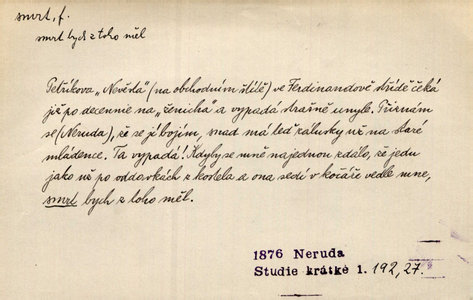 smrt, f.
smrt bych z toho měl
Petříkova „Nevěsta" (na obchodním štítě) ve Ferdinandově třídě čeká
již po decennie na „ženicha" a vypadá strašně umyle. Přiznám
se (Neruda), že se jí bojím, snad má teď zálusky už na staré
mládence. Ta vypadá! Kdyby se mně najednou zdálo, že jedu
jako už po oddavkách z kostela a ona sedí v kočáře vedle mne,
smrt bych z toho měl.
1876 Neruda
Studie krátké 1. 192, 27.